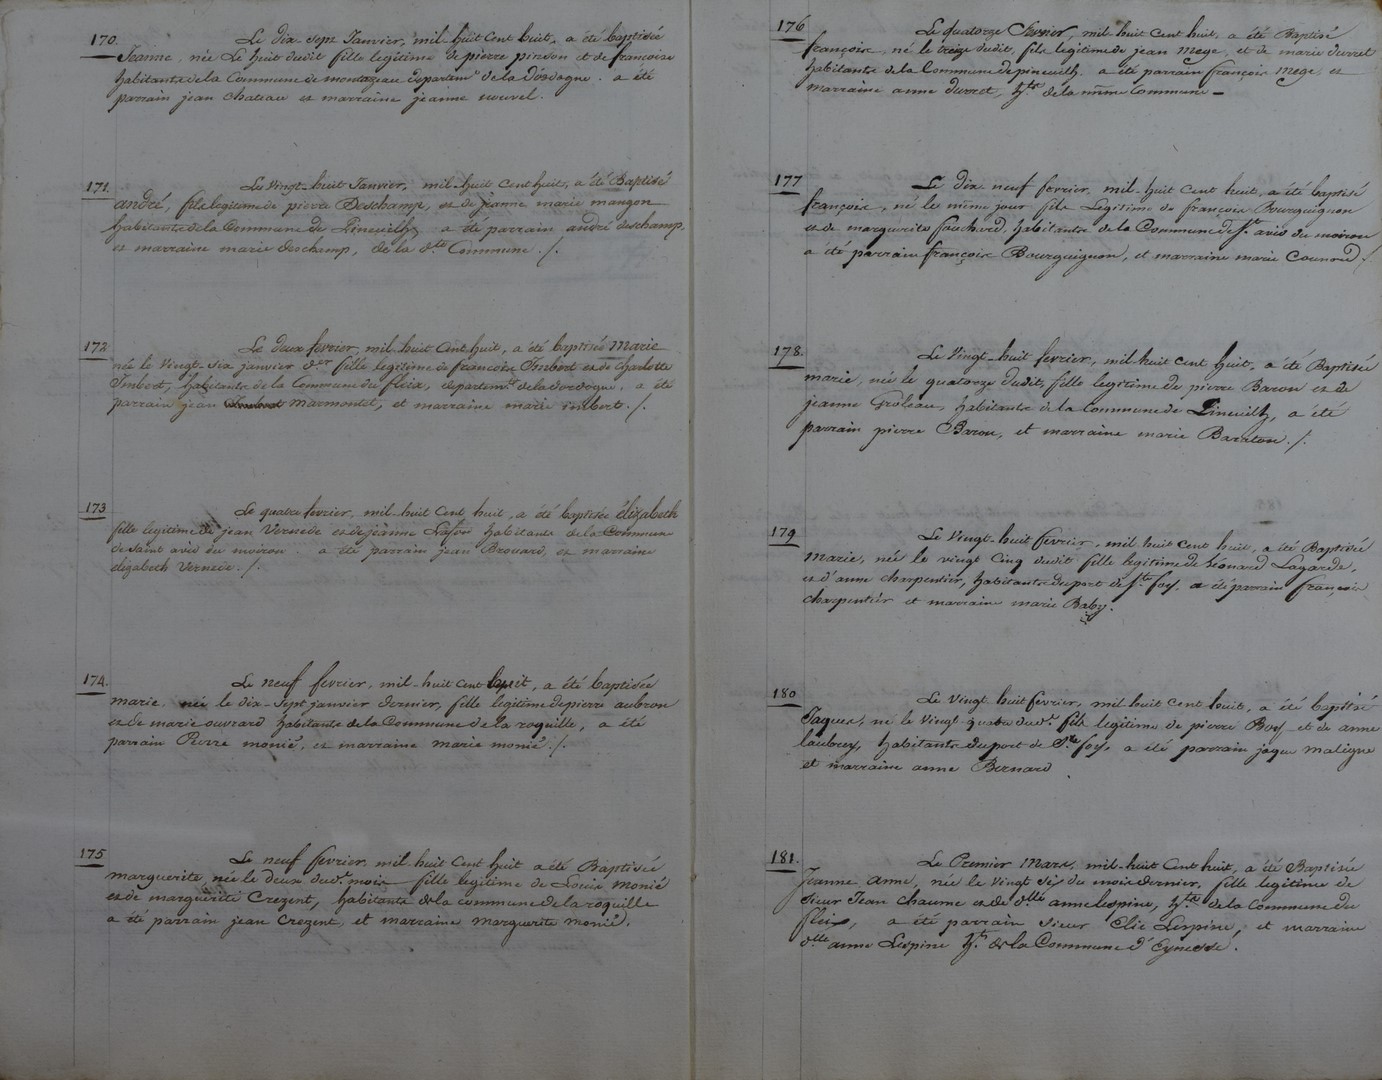 170. Le dix-sept Janvier, mil-huit cent huit, a été baptisée
Jeanne, née Le huit dudit fille légitime de pierre pinson et de françoise
habitants de la Commune de montazeau departemt de la Dordogne. a été
parrain jean chateau et marraine jeanne
171. Le Vingt-huit Janvier, mil-huit cent huit, a été Baptisé
andré, fils legitime de pierre Deschamp, et de jeanne marie maugon
habitants de la Commune de Pineuilh a été parrain andré deschamp,
et marraine marie deschamp, de la dte Commune ./.
172 Le deux fevrier, mil-huit cent huit, a été baptisée Marie
née le Vingt-six janvier der fille legitime de francois Imbert et de Charlotte
Imbert, habitants de la Commune du fleix, departemt de la dordogne, a été
parrain jean marmontel, et marraine marie imbert ./.
173 Le quatre fevrier, mil-huit cent huit, a été baptisée élizabeth
fille legitime de jean Vernede et de jeanne Lafon habitants de la Commune
de Saint avid du moiron. a été parrain jean Brouard, et marraine
elizabeth Vernede ./.
174. Le neuf fevrier, mil-huit cent huit, a été baptisée
marie, née le dix-sept janvier dernier, fille legitime de pierre aubron
et de marie ouvrard habitants de la Commune de la roquille, a été
parrain Pierre monié, et marraine marie monié ./.
175 Le neuf fevrier, mil huit cent huit a été Baptisée
marguerite, née le deux dudt mois fille legitime de Louis monié
et de marguerite Crezent, habitants de la commune de la roquille
a été parrain jean Crezent, et marraine marguerite monié.
176 Le quatorze fevrier, mil huit cent huit, a été Baptisé
françois, né le treize dudit, fils legitime de jean mege, et de marie durret
habitants de la Commune de pineuilh. a été parrain françois mege, et
marraine anne durret, hts de la même Commune -
177 Le dix neuf fevrier, mil-huit cent huit, a été baptisé
françois, né le même jour fils Legitime de françois Bourguignon
et de marguerite fouchard, habitants de la Commune de St avid du moiron
a été parrain françois Bourguignon, et marraine marie
178. Le Vingt-huit fevrier, mil-huit cent huit, a été Baptisée
marie, née le quatorze dudit, fille legitime de pierre Baron et de
jeanne Groleau, habitants de la Commune de Pineuilh, a été
parrain pierre Baron, et marraine marie Baraton ./.
179 Le Vingt-huit fevrier, mil-huit cent huit, a été Baptisée
Marie, née le vingt cinq dudit fille legitime de Léonard Lagarde,
et d'anne charpentier, habitants du port de Ste foy. a été parrain françois
charpentier et marraine marie Baby.
180 Le Vingt huit fevrier, mil huit cent huit, a été baptisé
Jaques, né le Vingt-quatre dudt fils legitime de pierre Boy et de anne
laubrey, habitants du port de Ste foy, a été parrain jaque maligne
et marraine anne Bernard.
181. Le Premier mars, mil-huit cent huit, a été Baptisée
Jeanne anne, née le vingt six du mois dernier, fille legitime de
Sieur Jean chaume et de dlle anne lespine, hts de la Commune du
fleix, a été parrain Sieur Elie Lespine, et marraine
dlle anne Lespine hte de la Commune d'Eynesse.